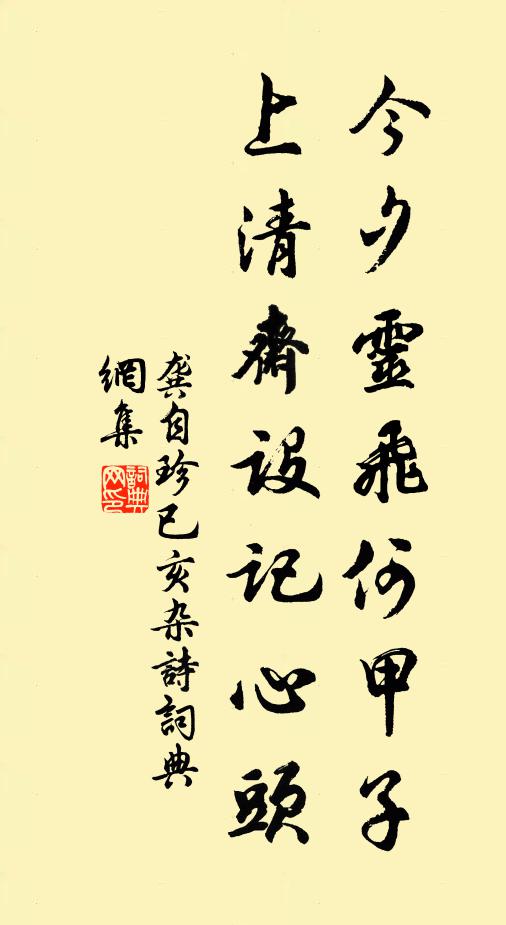 今夕靈飛何甲子
上清齋設記心頭
龔自珍己亥杂詩詞典
網集
詞典網印